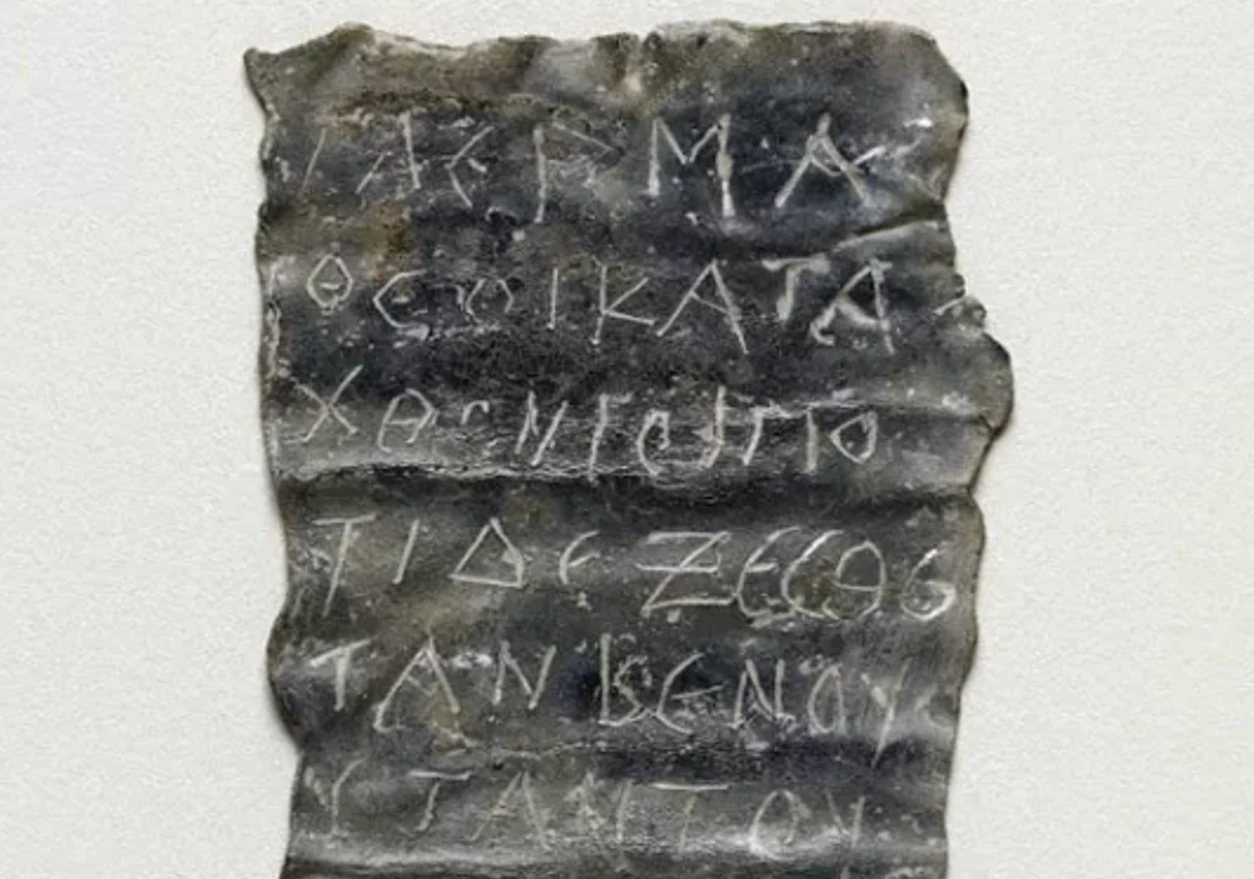 ΓΑΕΡΜΑ
ΘΕΟΙΚΑΤΑ
ΧΘΟΝΙΟΙΠΟ
ΤΙΔΕΞΕϹΘΕ
ΤΑΝΒΕΝΟΥ
ϹΤΑΝΤΟΥ